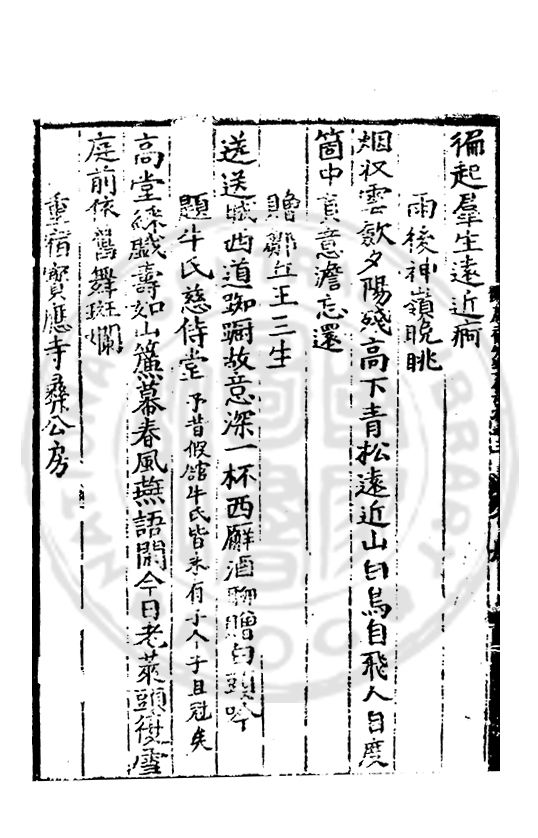 徧起羣生遠近痾
雨後神嶺晚眺
烟収雲歛夕陽殘高下青松遠近山白鳥自飛人自度
箇中真意澹忘還
贈鄭丘王三生
送送城西道踟蹰故意深一杯西廨酒聊贈白頭吟
題牛氏慈侍堂予昔假館牛氏皆未有子今子且冠矣
高堂綵戲壽如山簾幕春風燕語閑今日老萊頭復雪
庭前依舊舞斑斕
重宿寳應寺彛公房